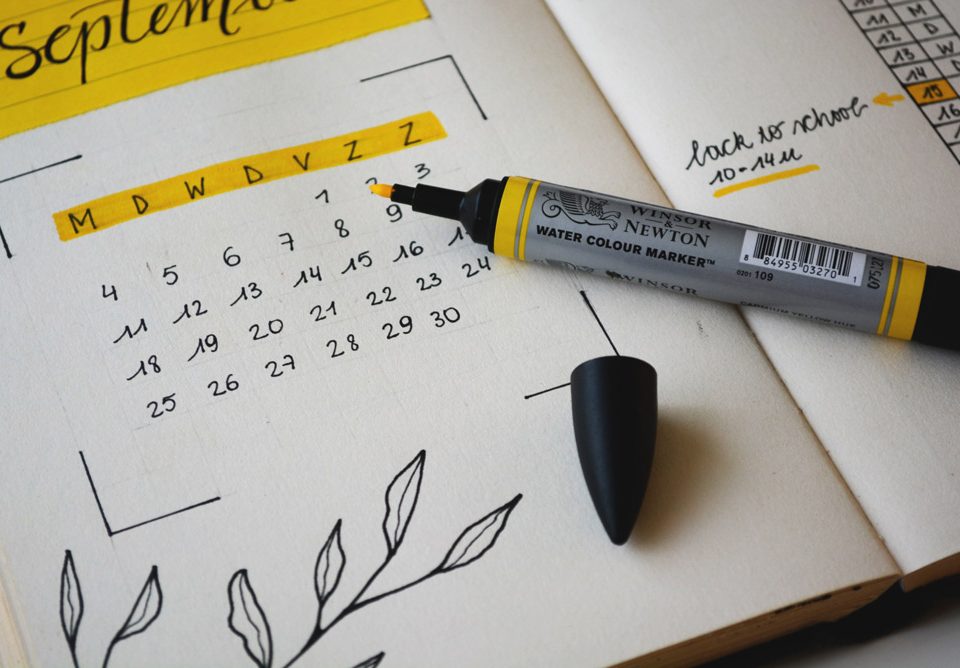 September
M D W D V Z Z
1 2 3
4 5 6 7 8 9
11 12 13 14 15 16
18 19 20 21 22 23 24
25 26 27 28 29 30
10 M
11 D
12 W
13 D
14
15
16
back to school
10-14u
WINSOR
& NEWTON
WATER COLOUR MARKER™
8 84955 03270 1
0201 109
CADMIUM YELLOW HUE
WINSOR